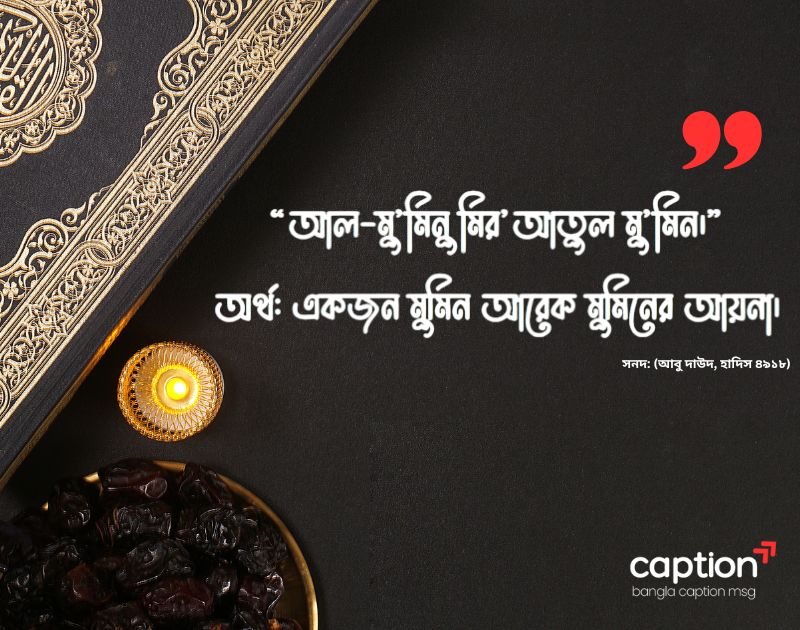 “আল-মু’মিনু মির’আতুল মু’মিন।”
অর্থ: একজন মুমিন আরেক মুমিনের আয়না।
সনদ: (আবু দাউদ, হাদিস ৪৯১৮)
caption
bangla caption msg